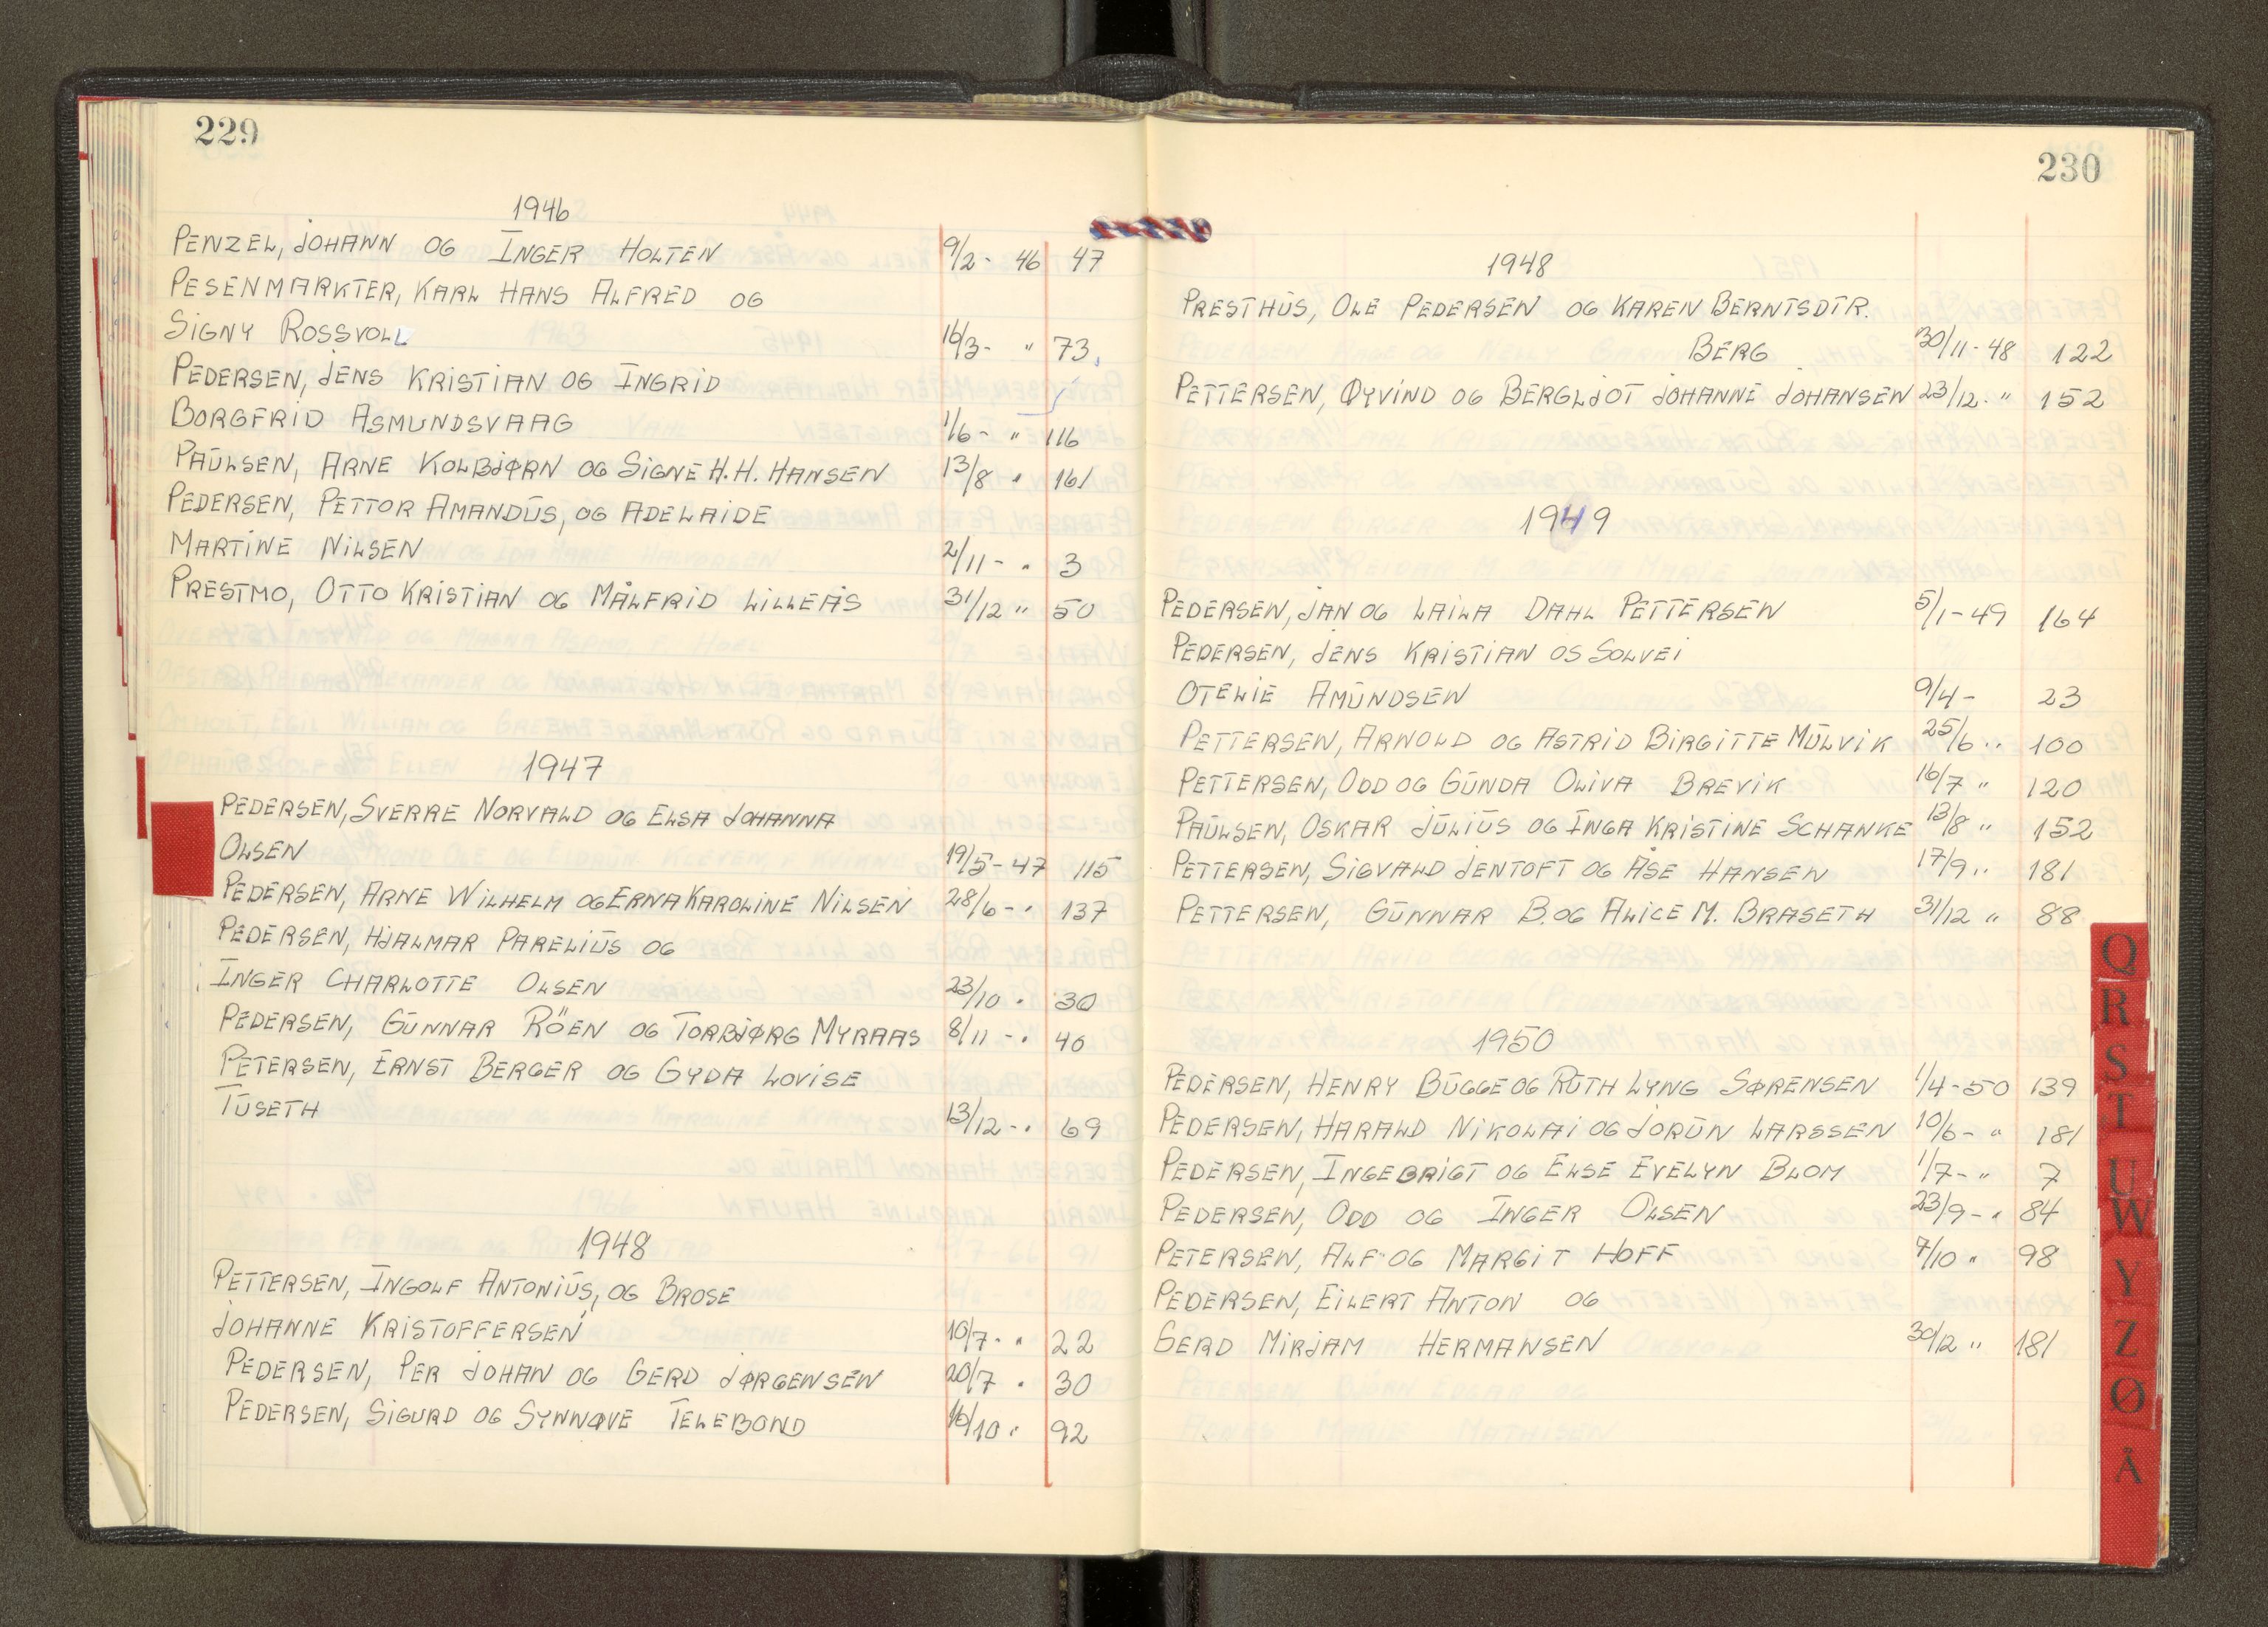 229
1946
PENZEL, JOHANN OG INGER HOLTEN 9/2 - 46 47
PESENMARKTER, KARL HANS ALFRED OG
SIGNY ROSSVOLL 16/3 - " 73
PEDERSEN, JENS KRISTIAN OG INGRID
BORGFRID ASMUNDSVAAG 1/6 - " 116
PAŪLSEN, ARNE KOLBJØRN OG SIGNE H.H. HANSEN 13/8 " 161
PEDERSEN, PETTOR AMANDŪS, OG ADELAIDE
MARTINE NILSEN 2/11 - " 3
PRESTMO, OTTO KRISTIAN OG MÅLFRID LILLEÅS 31/12 " 50
1947
PEDERSEN, SVERRE NORVALD OG ELSA JOHANNA
OLSEN 19/5 - 47 115
PEDERSEN, ARNE WILHELM OG ERNA KAROLINE NILSEN 28/6 - " 137
PEDERSEN, HJALMAR PARELIŪS OG
INGER CHARLOTTE OLSEN 23/10 " 30
PEDERSEN, GŪNNAR RÖEN OG TORBJØRG MYRAAS 8/11 - " 40
PETERSEN, ERNST BERGER OG GYDA LOVISE
TŪSETH 13/12 - " 69
1948
PETTERSEN, INGOLF ANTONIŪS, OG BROSE
JOHANNE KRISTOFFERSEN 10/7 - " 22
PEDERSEN, PER JOHAN OG GERD JØRGENSEN 20/7 " 30
PEDERSEN, SIGURD OG SYNNØVE TELEBOND 16/10 " 92
230
1948
PRESTHŪS, OLE PEDERSEN OG KAREN BERNTSDTR.
BERG 30/11 - 48 122
PETTERSEN, ØYVIND OG BERGLJOT JOHANNE JOHANSEN 23/12 - " 152
1949
PEDERSEN, JAN OG LAILA DAHL PETTERSEN 5/1 - 49 164
PEDERSEN, JENS KRISTIAN OS SOLVEI
OTELIE AMŪNDSEN 9/4 - 23
PETTERSEN, ARNOLD OG ASTRID BIRGITTE MŪLVIK 25/6 " 100
PETTERSEN, ODD OG GŪNDA OLIVA BREVIK 16/7 " 120
PAŪLSEN, OSKAR JŪLIŪS OG INGA KRISTINE SCHANKE 13/8 " 152
PETTERSEN, SIGVALD JENTOFT OG ÅSE HANSEN 17/9 " 181
PETTERSEN, GŪNNAR B. OG ALICE M. BRASETH 31/12 " 88
1950
PEDERSEN, HENRY BŪGGE OG RŪTH LYNG SØRENSEN 1/4 - 50 139
PEDERSEN, HARALD NIKOLAI OG JORŪN LARSSEN 10/6 - " 181
PEDERSEN, INGEBRIGT OG ELSE EVELYN BLOM 1/7 - " 7
PEDERSEN, ODD OG INGER OLSEN 23/9 - " 84
PETERSEN, ALF OG MARGIT HOFF 7/10 " 98
PEDERSEN, EILERT ANTON OG
GERD MIRJAM HERMANSEN 30/12 " 181
Q
R
S
T
U
W
Y
Z
Ø
Å